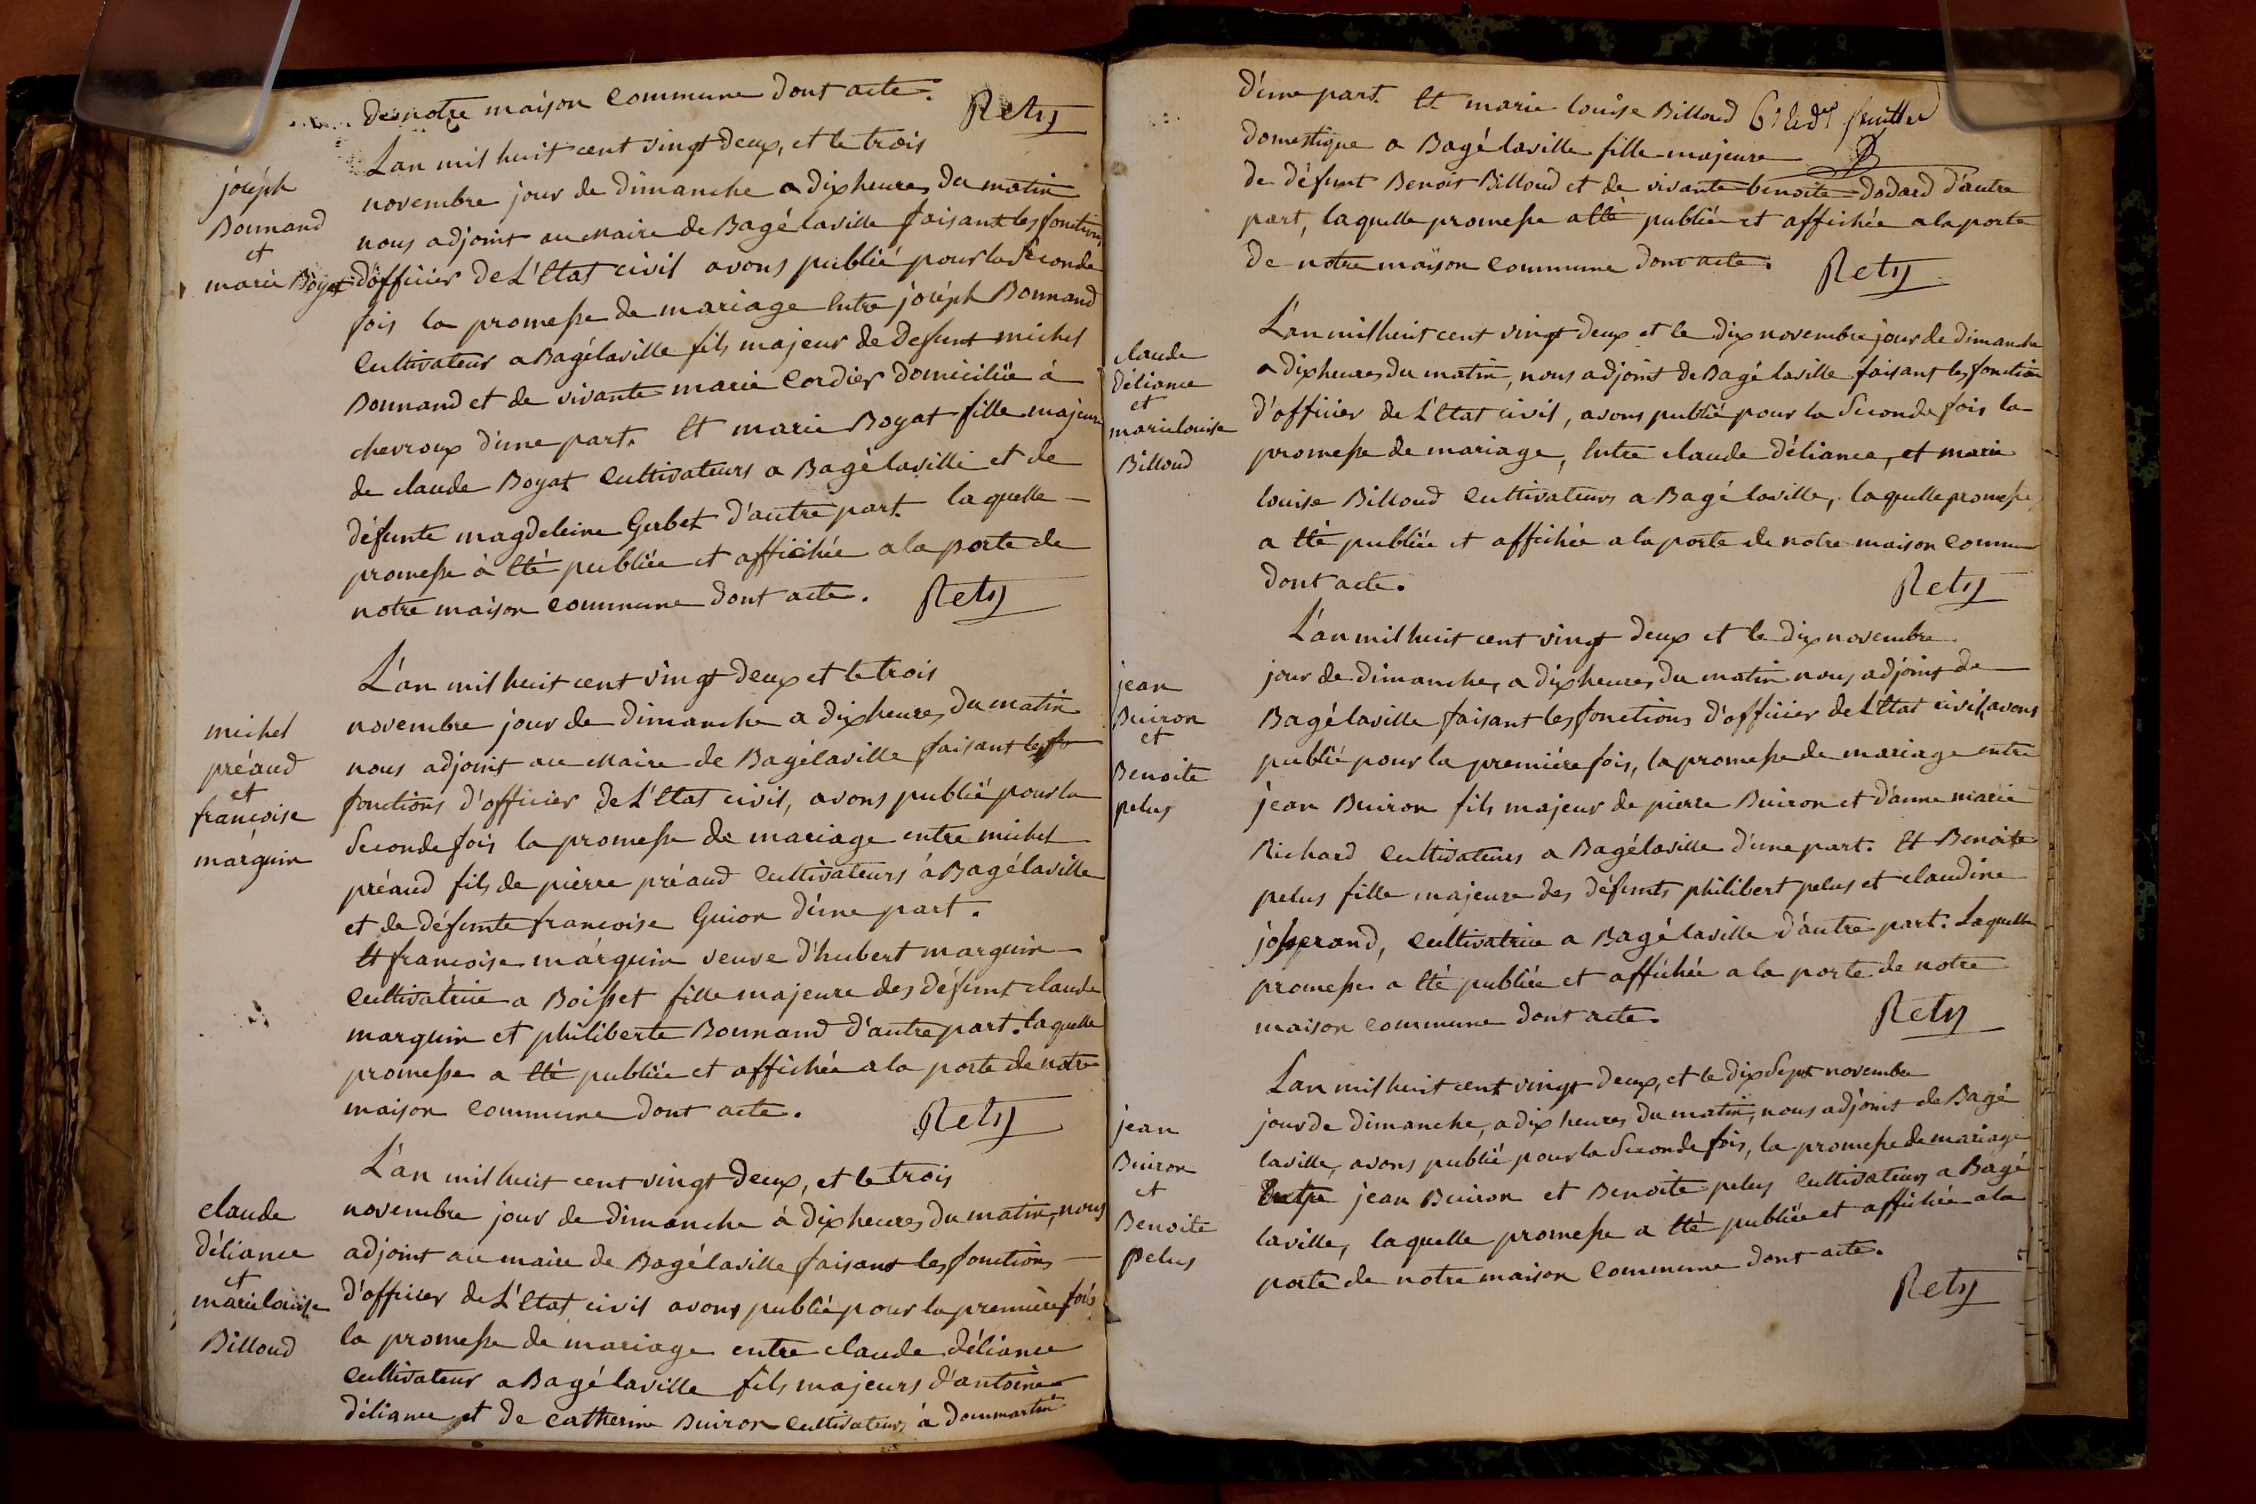 de notre maison commune dont acte.
Rety
joséph
Bonnand
et
marie Boyat
Lan mil huit cent vingt deux, et le trois
novembre jour de dimanche a dix heures du matin
nous adjoint au Maire de Bagé laville faisant les fonctions
d'officier de L'Etat civil avons publié pour la Seconde
fois la promesse de mariage Entre joséph Bonnand
Cultivateur a Bagé laville fils majeur de Defunt michel
Bonnand et de vivante marie Cordier domiciliée à
chevroux d'une part. Et marie Boyat fille majeure
de claude Boyat Cultivateurs a Bagé laville et de
défunte magdeleine Gerbet d'autre part. la quelle
promesse à Eté publiée et affichée a la porte de
notre maison commune dont acte. Rety
michel
préaud
et
françoise
marguin
L'an mil huit cent vingt deux et le trois
novembre jour de dimanche a dix heures du matin
nous adjoint au Maire de Bagé laville faisant les
fonctions d'officier de L'Etat civil, avons publié pour la
Seconde fois la promesse de mariage entre michel
préaud fils de pierre préaud Cultivateurs à Bagé laville
et de défunte françoise Guion d'une part.
Et françoise marguin veuve d'hubert marguin
Cultivatrice a Boisset fille majeure des défunt claude
marguin et philiberte Bonnand d'autre part. laquelle
promesse a Eté publiée et affichée a la porte de notre
maison commune dont acte. Rety
claude
déliance
et
marie louise
Billoud
L'an mil huit cent vingt deux, et le trois
novembre jour de dimanche à dix heures du matin, nous
adjoint au maire de Bagé laville faisant les fonctions
d'officier de L'Etat civil avons publié pour la premiere fois
la promesse de mariage entre claude déliance
Cultivateur a Bagé laville fils majeurs d'antoine
déliance et de catherine Buiron Cultivateurs à dommartin
d'une part. Et marie louise Billoud
domestique a Bagé laville fille majeure
de défunt Benoit Billoud et de vivante benoite Dodard d'autre
part, la quelle promesse a Eté publiée et affichée a la porte
de notre maison commune dont acte. Rety
claude
déliance
et
marie louise
Billoud
L'an mil huit cent vingt deux et le dix novembre jour de dimanche
a dix heures du matin, nous adjoint de Bagé laville faisant les fonction
d'officier de L'Etat civil, avons publié pour la Seconde fois la
promesse de mariage, Entre claude déliance, et marie
louise Billoud Cultivateurs a Bagé laville, la quelle promesse
a Eté publiée et affichée a la porte de notre maison commune
dont acte. Rety
jean
Buiron
et
Benoite
pelus
L'an mil huit cent vingt deux et le dix novembre
jour de dimanche, a dix heures du matin nous adjoint de
Bagé laville faisant les fonctions d'officier de L'Etat civil, avons
publié pour la premiére fois, la promesse de mariage entre
jean Buiron fils majeur de pierre Buiron et d'anne marie
Richard Cultivateurs a Bagé laville d'une part. Et Benoite
pelus fille majeure des défunts philibert pelus et claudine
josserand, Cultivatrice a Bagé laville d'autre part. Laquelle
promesse a Eté publiée et affichée a la porte de notre
maison commune dont acte. Rety
jean
Buiron
et
Benoite
pelus
Lan mil huit cent vingt deux, et le dix Sept novembre
jour de dimanche, a dix heures du matin, nous adjoint de Bagé
laville, avons publié pour la Seconde fois, la promesse de mariage
Entre jean Buiron et Benoite pelus Cultivateurs a Bagé
laville, la quelle promesse a Eté publiée et affichée a la
porte de notre maison commune dont acte.
Rety